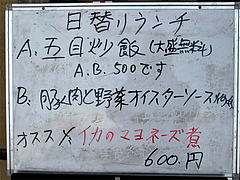 日替りランチ
A. 五目炒飯 (大盛無料)
A.B. 500です
B. 豚肉と野菜オイスターソース
オススメ イカのマヨネーズ煮
600.円